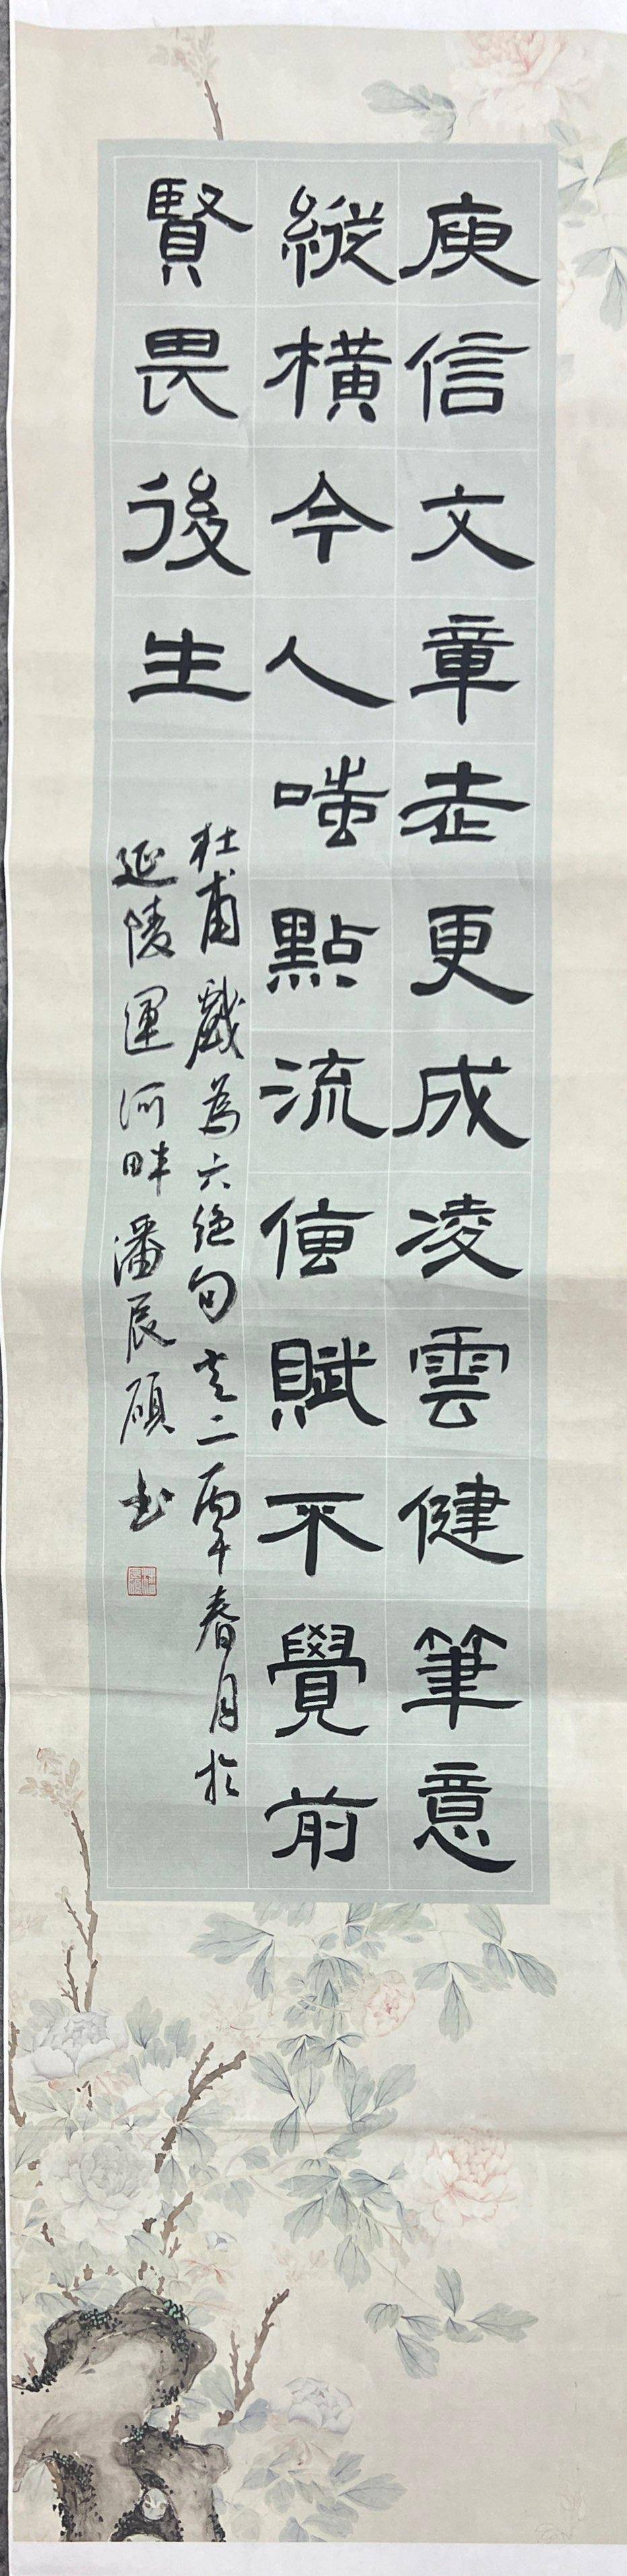 庾信文章老更成凌雲健筆意
縱橫今人嗤點流傳賦不覺前
賢畏後生
杜甫戲為六絕句之二丙午春月於
延陵運河畔潘辰碩書